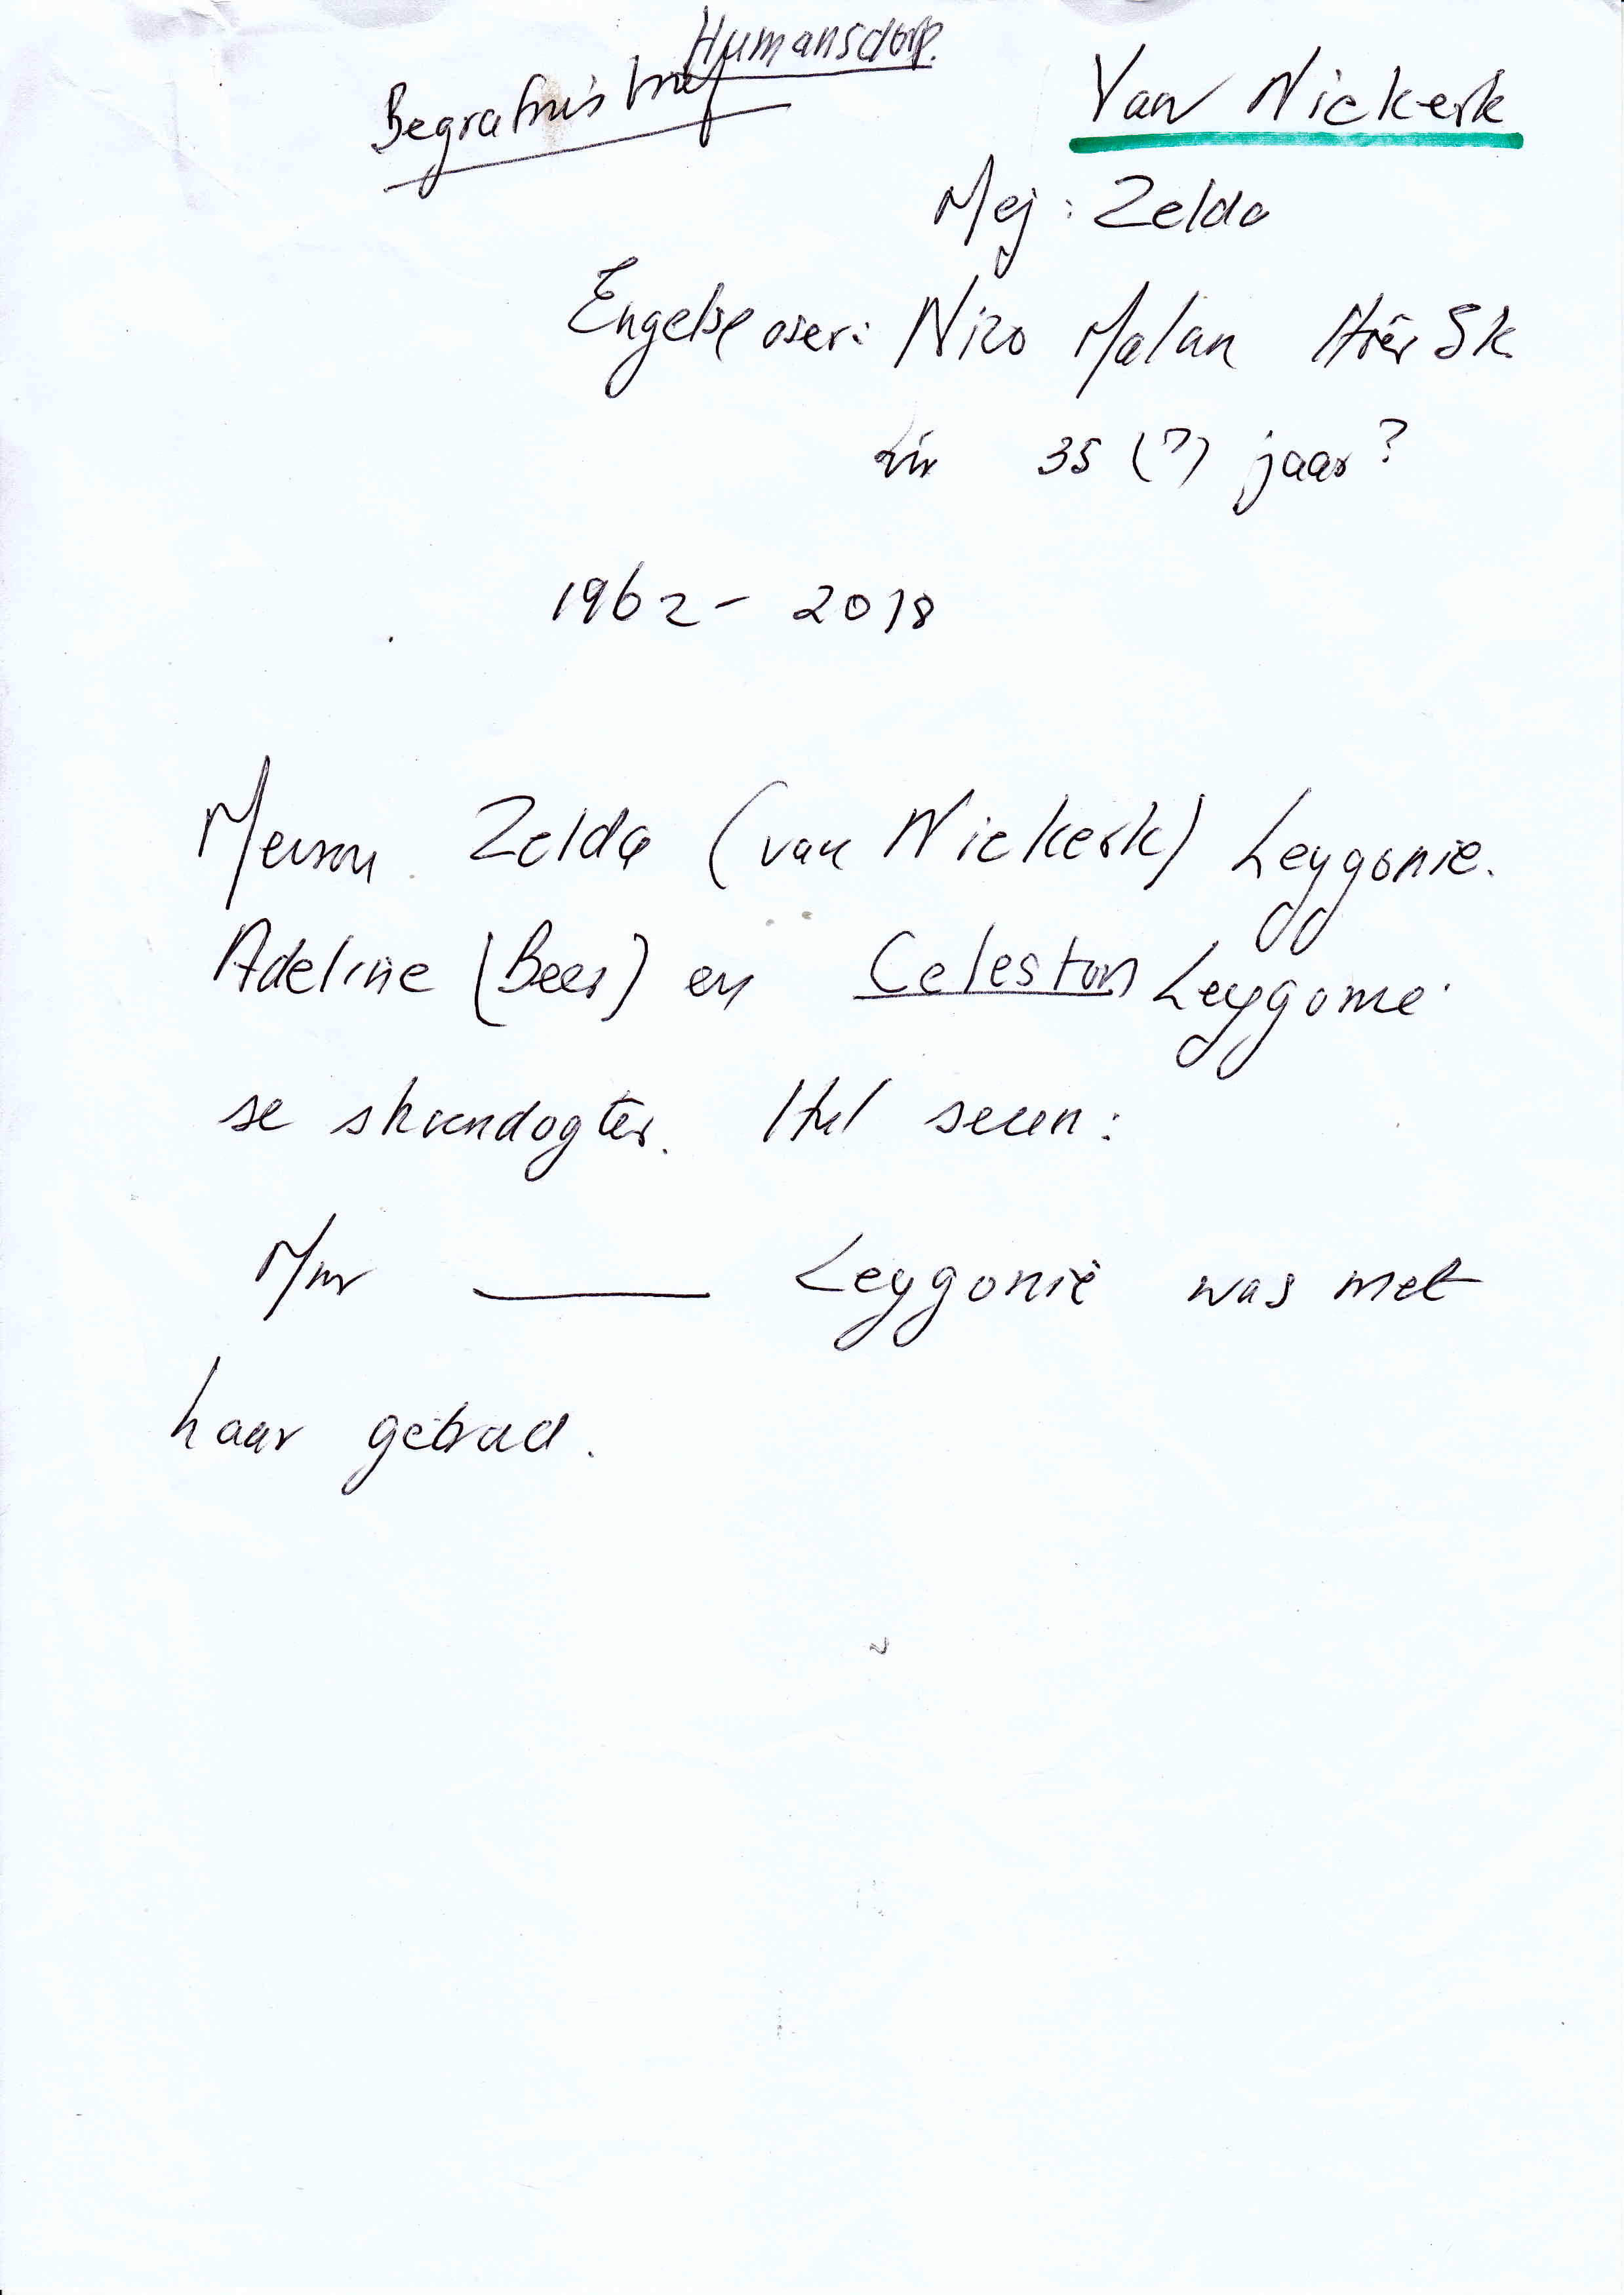 Humansdorp.
Begrafnis brief
Van Niekerk
Mej: Zelda
Engelse oser: Nico Malan Hoër Sk.
vir 35 (?) jaar?
1962 - 2018
Mevrou Zelda (van Niekerk) Leygonie.
Adeline (Bees) en Celeston Leygonie
se skoondogter. Hul seun:
Mnr _____ Leygonie was met
haar getroud.